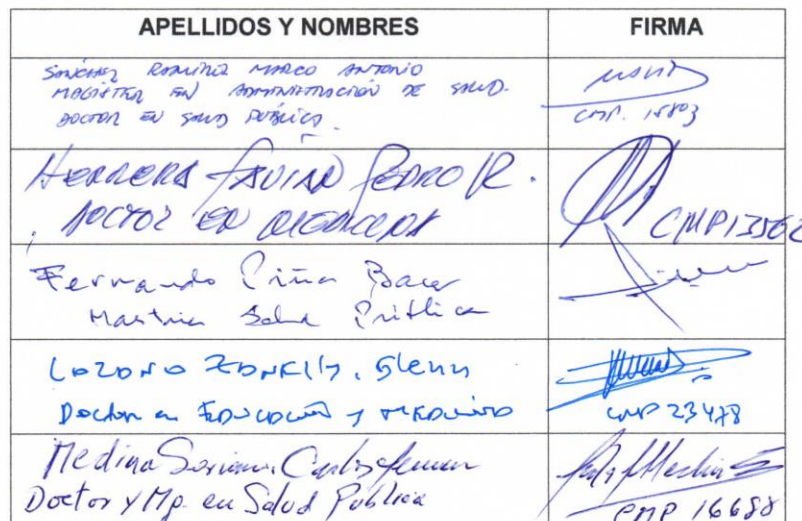 APELLIDOS Y NOMBRES
FIRMA
SÁNCHEZ RAMÍREZ MARCO ANTONIO
MAGISTER EN ADMINISTRACIÓN DE SALUD.
DOCTOR EN SALUD PÚBLICA.
CMP. 15803
HERRERA FAVIAN PEDRO R.
DOCTOR EN MEDICINA
CMP13562
Fernando Piña
Maestria Salud Pública
LOZANO ZANELLY, Glenn
Doctor en EDUCACIÓN y MEDICINA
CMP 23478
Medina Soriano Carlos
Doctor y Mg. en Salud Pública
CMP 16688